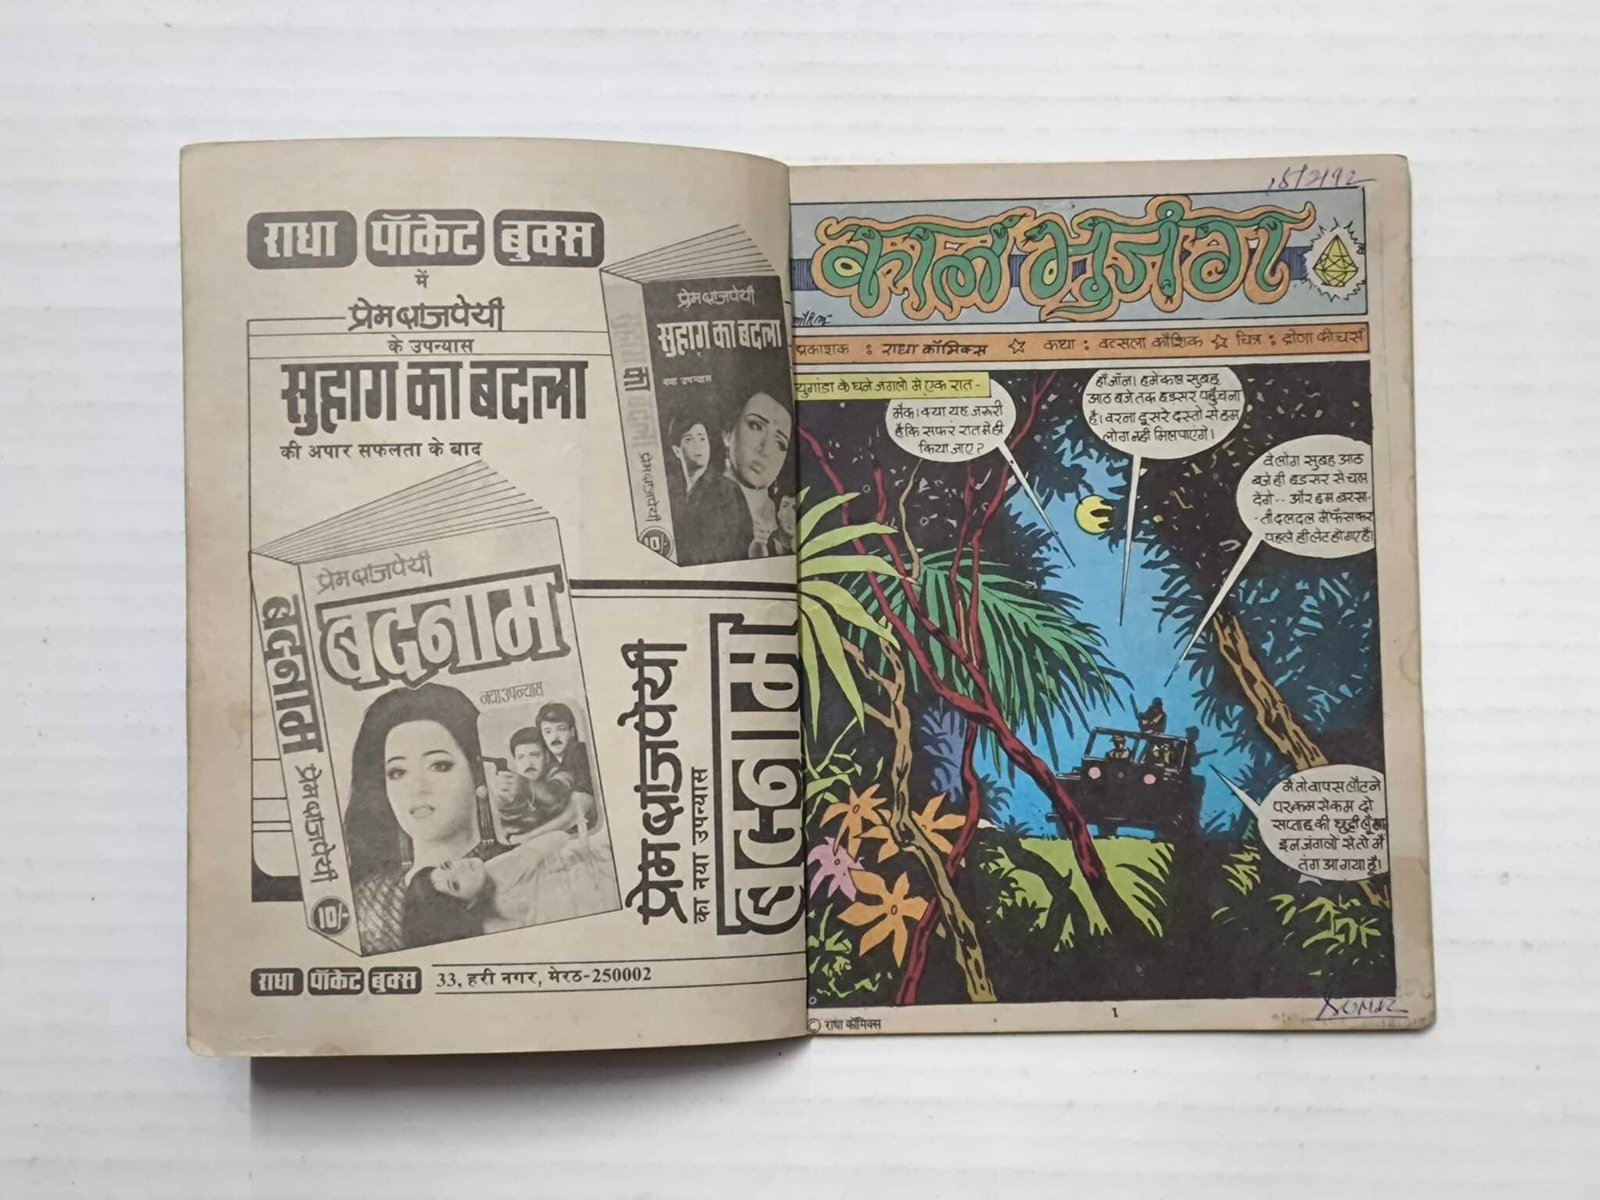 राधा पॉकेट बुक्स
में
प्रेम बाजपेयी
के उपन्यास
सुहाग का बदला
की अपार सफलता के बाद
प्रेम बाजपेयी
सुहाग का बदला
नया उपन्यास
सुहाग का बदला प्रेम बाजपेयी
10/-
प्रेम बाजपेयी
बदनाम
नया उपन्यास
बदनाम प्रेम बाजपेयी
10/-
प्रेम बाजपेयी
का नया उपन्यास
बदनाम
राधा पॉकेट बुक्स 33, हरी नगर, मेरठ-250002
काल भुजंग
प्रकाशक : राधा कॉमिक्स ☆ कथा : वत्सला कौशिक ☆ चित्र : द्रोणा फीचर्स
युगांडा के घने जंगलो मे एक रात -
मैक। क्या यह जरूरी
है कि सफर रात मे ही
किया जाए?
हाँ जॉन। हमे कल सुबह
आठ बजे तक हडसर पहुँचना
है। वरना दूसरे दस्ते से हम
लोग नही मिल पाएंगे।
वे लोग सुबह आठ
बजे ही हडसर से चल
देंगे-- और हम बरसा-
-ती दलदल मे फँसकर
पहले ही लेट हो गए है।
मै तो वापस लौटने
पर कम से कम दो
सप्ताह की छुट्टी लूँगा
इन जंगलो से तो मै
तंग आ गया हूँ।
1
© राधा कॉमिक्स